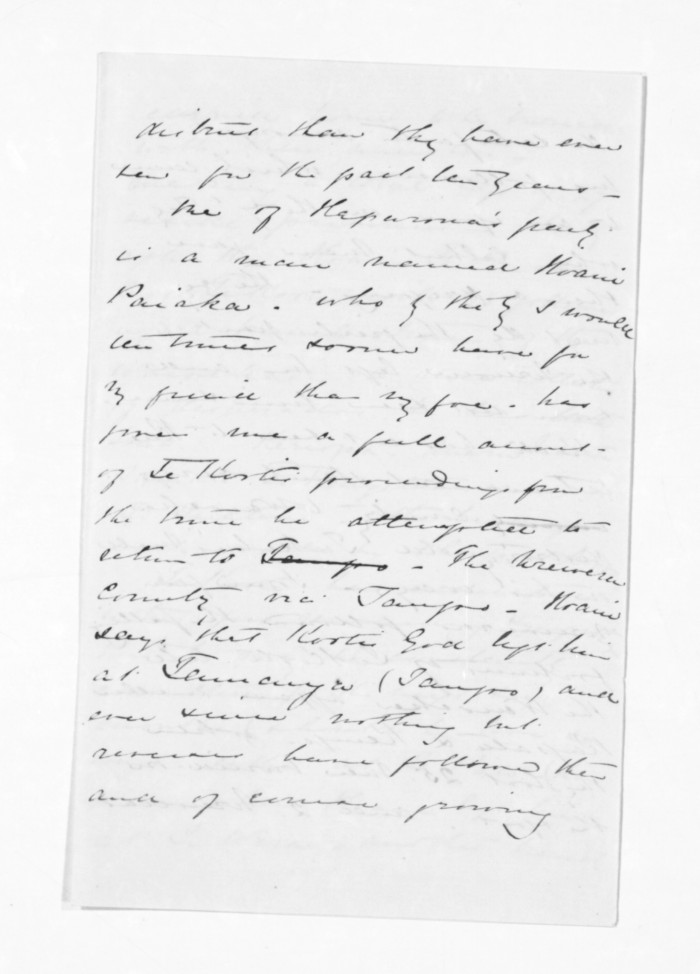 district than they have ever
seen for the past ten years –
One of Hapurona's party
is a man named Hoani
Paiaka. who by the by I would
ten times sooner have for
my friend than my foe – has
given me a full account
of Te Kooti's proceedings from
the time he attempted to
return to Taupo – The Urewera
Country via Taupo – Hoani
says that Kooti's God left him
at Tauranga (Taupo) and
ever since nothing but
reverses have followed them
and of course growing